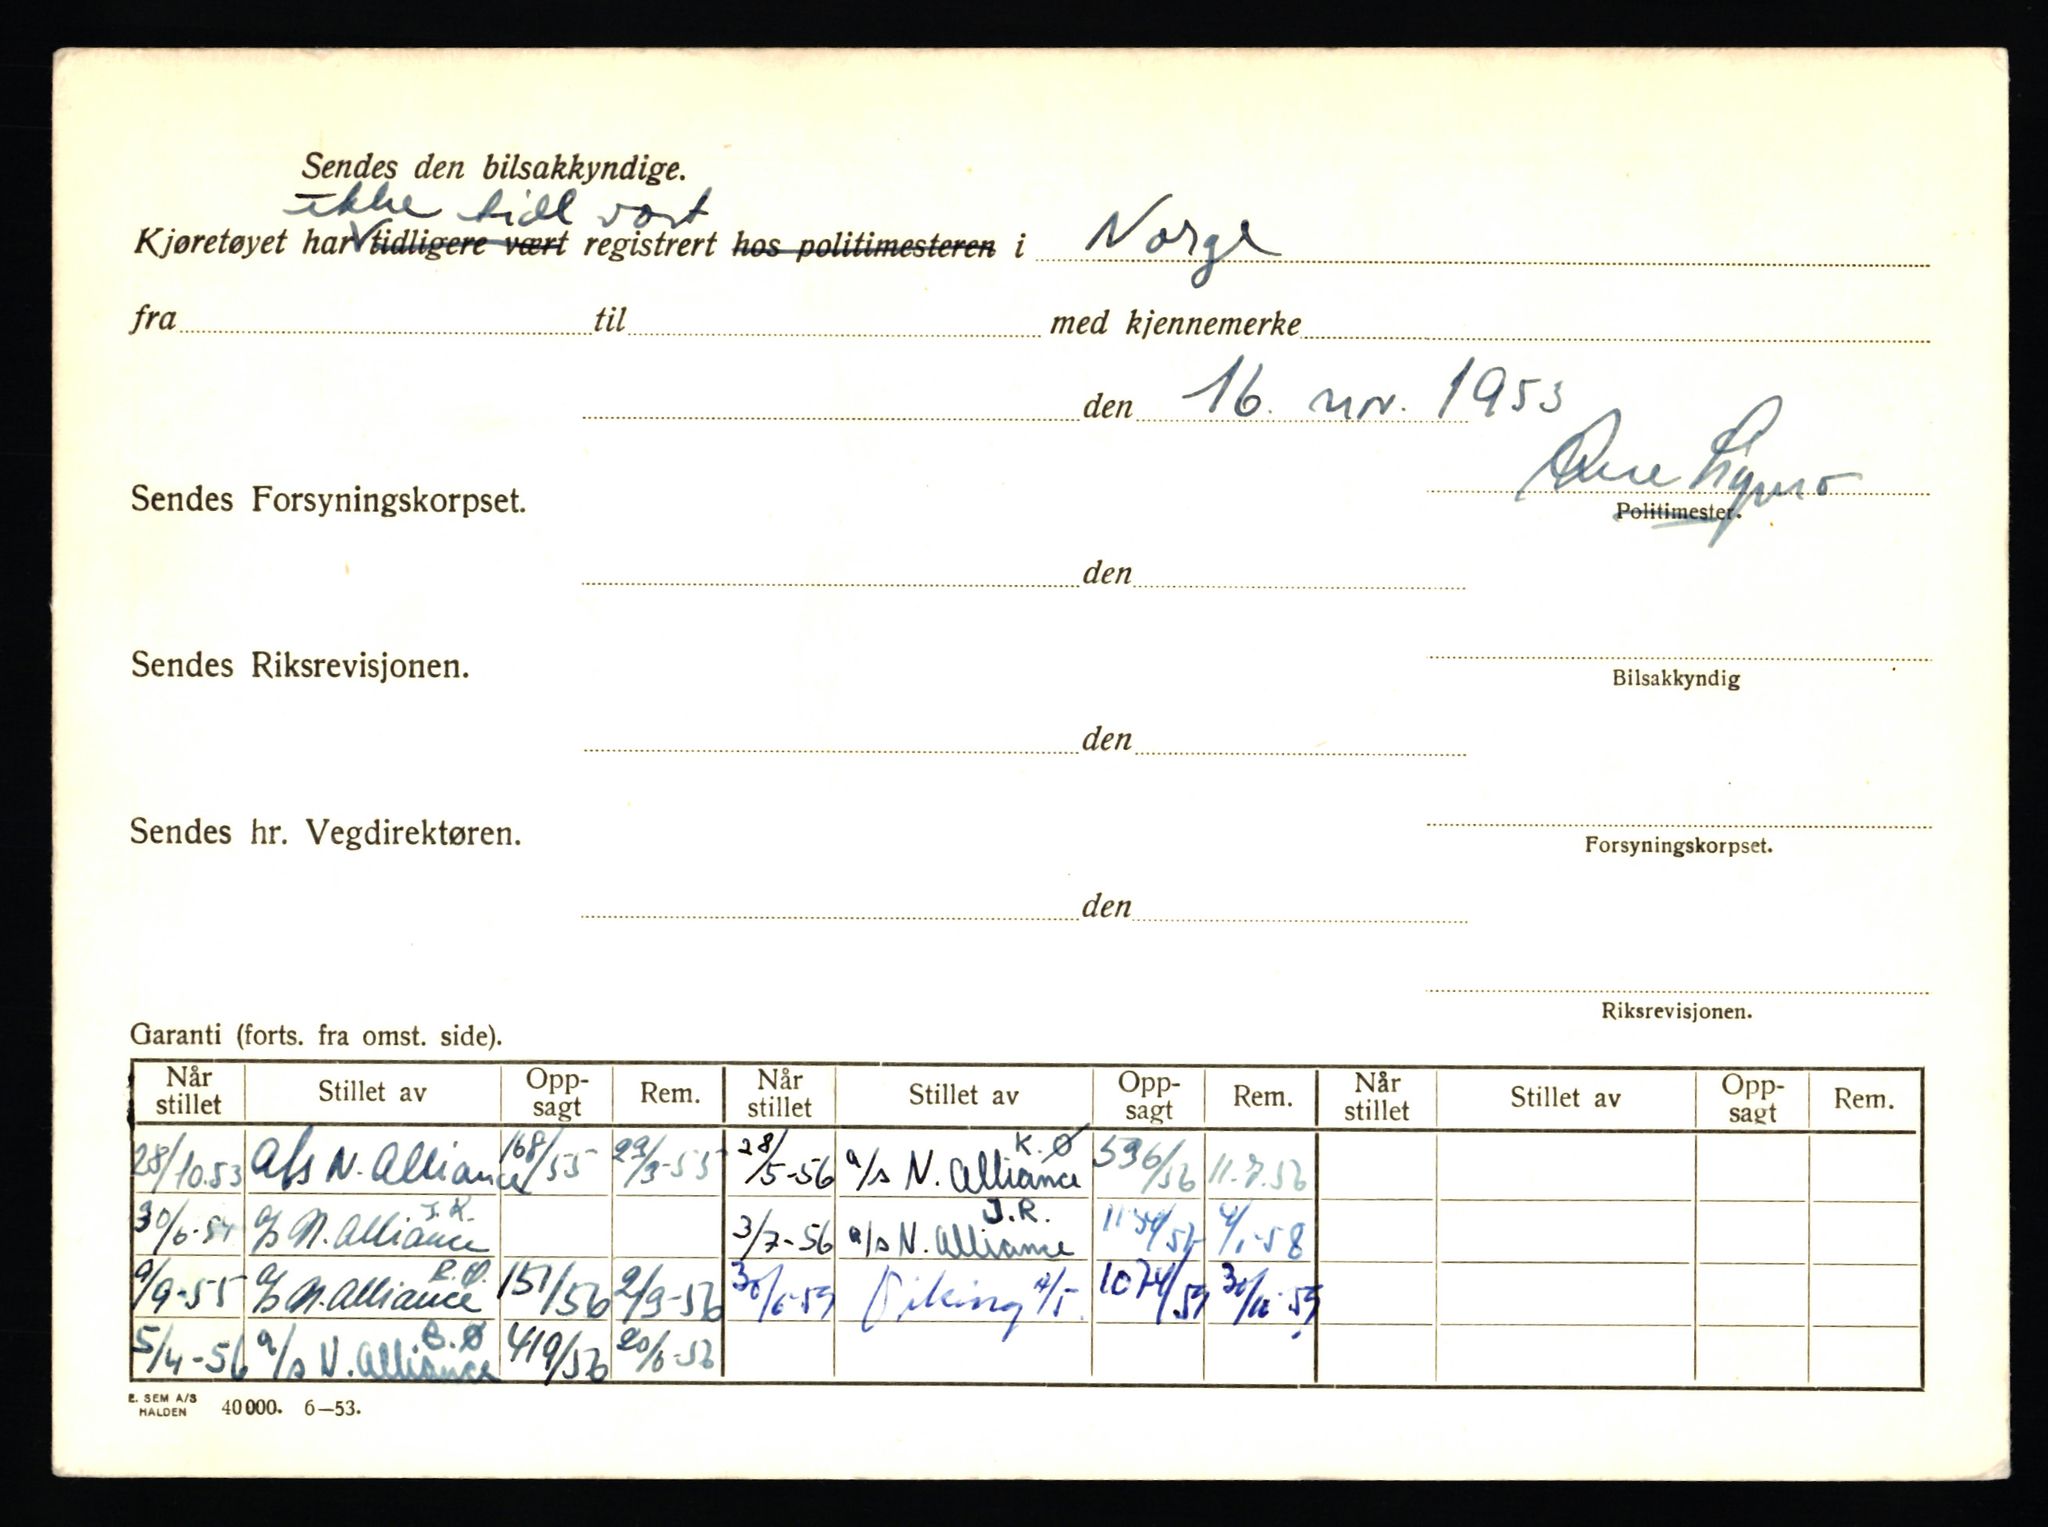 Sendes den bilsakkyndige.
ikke tidl vært
Kjøretøyet har tidligere vært registrert hos politimesteren i Norge
fra til med kjennemerke
den 16. nov. 1953
Sendes Forsyningskorpset.
Politimester.
den
Sendes Riksrevisjonen.
Bilsakkyndig
den
Sendes hr. Vegdirektøren.
Forsyningskorpset.
den
Riksrevisjonen.
Garanti (forts. fra omst. side).
Når stillet Stillet av Opp-sagt Rem. Når stillet Stillet av Opp-sagt Rem. Når stillet Stillet av Opp-sagt Rem.
28/10.53 A/s N. Alliance 168/55 29/3-55 28/5-56 a/s N. Alliance K.Ø 596/56 11.7.56
30/6-54 a/s N. Alliance J.R. 3/7-56 a/s N. Alliance J.R. 4/1-58
9/9-55 a/s N. Alliance 151/56 2/3-56 Viking A/S. 1074/59
5/4-56 a/s N. Alliance B.Ø 419/56 20/6-56
E. SEM A/S
HALDEN 40 000. 6—53.